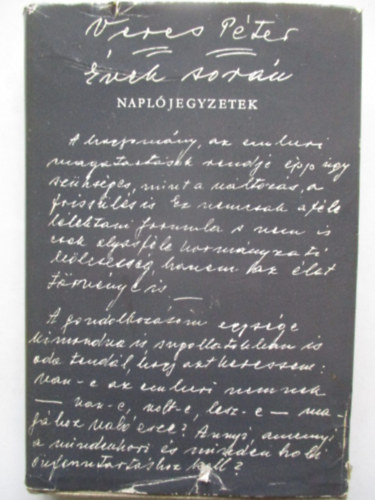 Veres Péter
Évek során
NAPLÓJEGYZETEK
A hagyomány, az emberi
magatartások rendje épp úgy
szükséges, mint a változás, a
frissülés is. Ez nemcsak aféle
lélektani formula s nem is
csak olyasféle kormányzati
bölcsesség, hanem az élet
törvénye is —
A gondolkozásom egysége
kimondva is sugalltabban is
oda tendál, hogy azt keressem:
van-e az emberi nemnek
— van-e, volt-e, lesz-e — ma-
gához való esze? Annyi, amennyi
a mindenkori és minden holi
önfenntartáshoz kell?